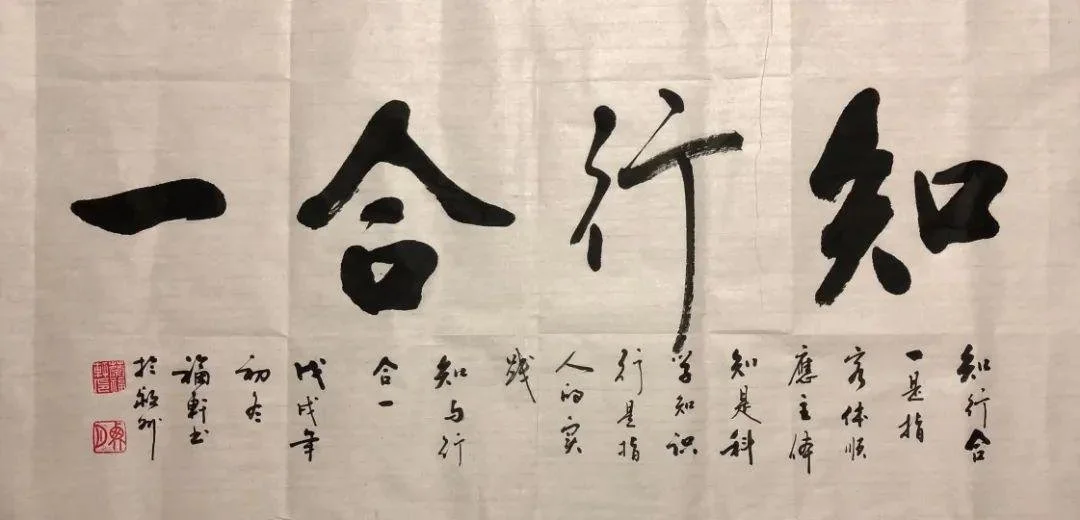 知行合一
知行合
一是指
客体顺
應主体
知是科
学知识
行是指
人的实
践
知与行
合一
戊戌年
初冬
福軒书
於 州